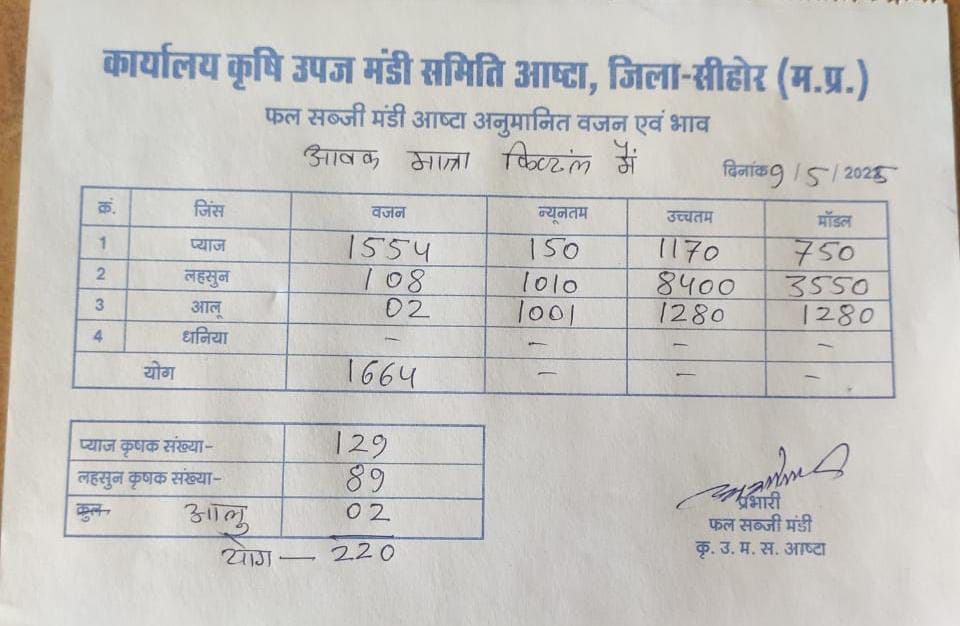 कार्यालय कृषि उपज मंडी समिति आष्टा, जिला-सीहोर (म.प्र.)
फल सब्जी मंडी आष्टा अनुमानित वजन एवं भाव
आवक मात्रा क्विटंल में
दिनांक 9/5/2025
क्रं. जिंस वजन न्यूनतम उच्चतम मॉडल
1 प्याज 1554 150 1170 750
2 लहसुन 108 1010 8400 3550
3 आलू 02 1001 1280 1280
4 धनिया - - - -
योग 1664 - - -
प्याज कृषक संख्या- 129
लहसुन कृषक संख्या- 89
कुल- आलु 02
योग — 220
प्रभारी
फल सब्जी मंडी
कृ. उ. म. स. आष्टा